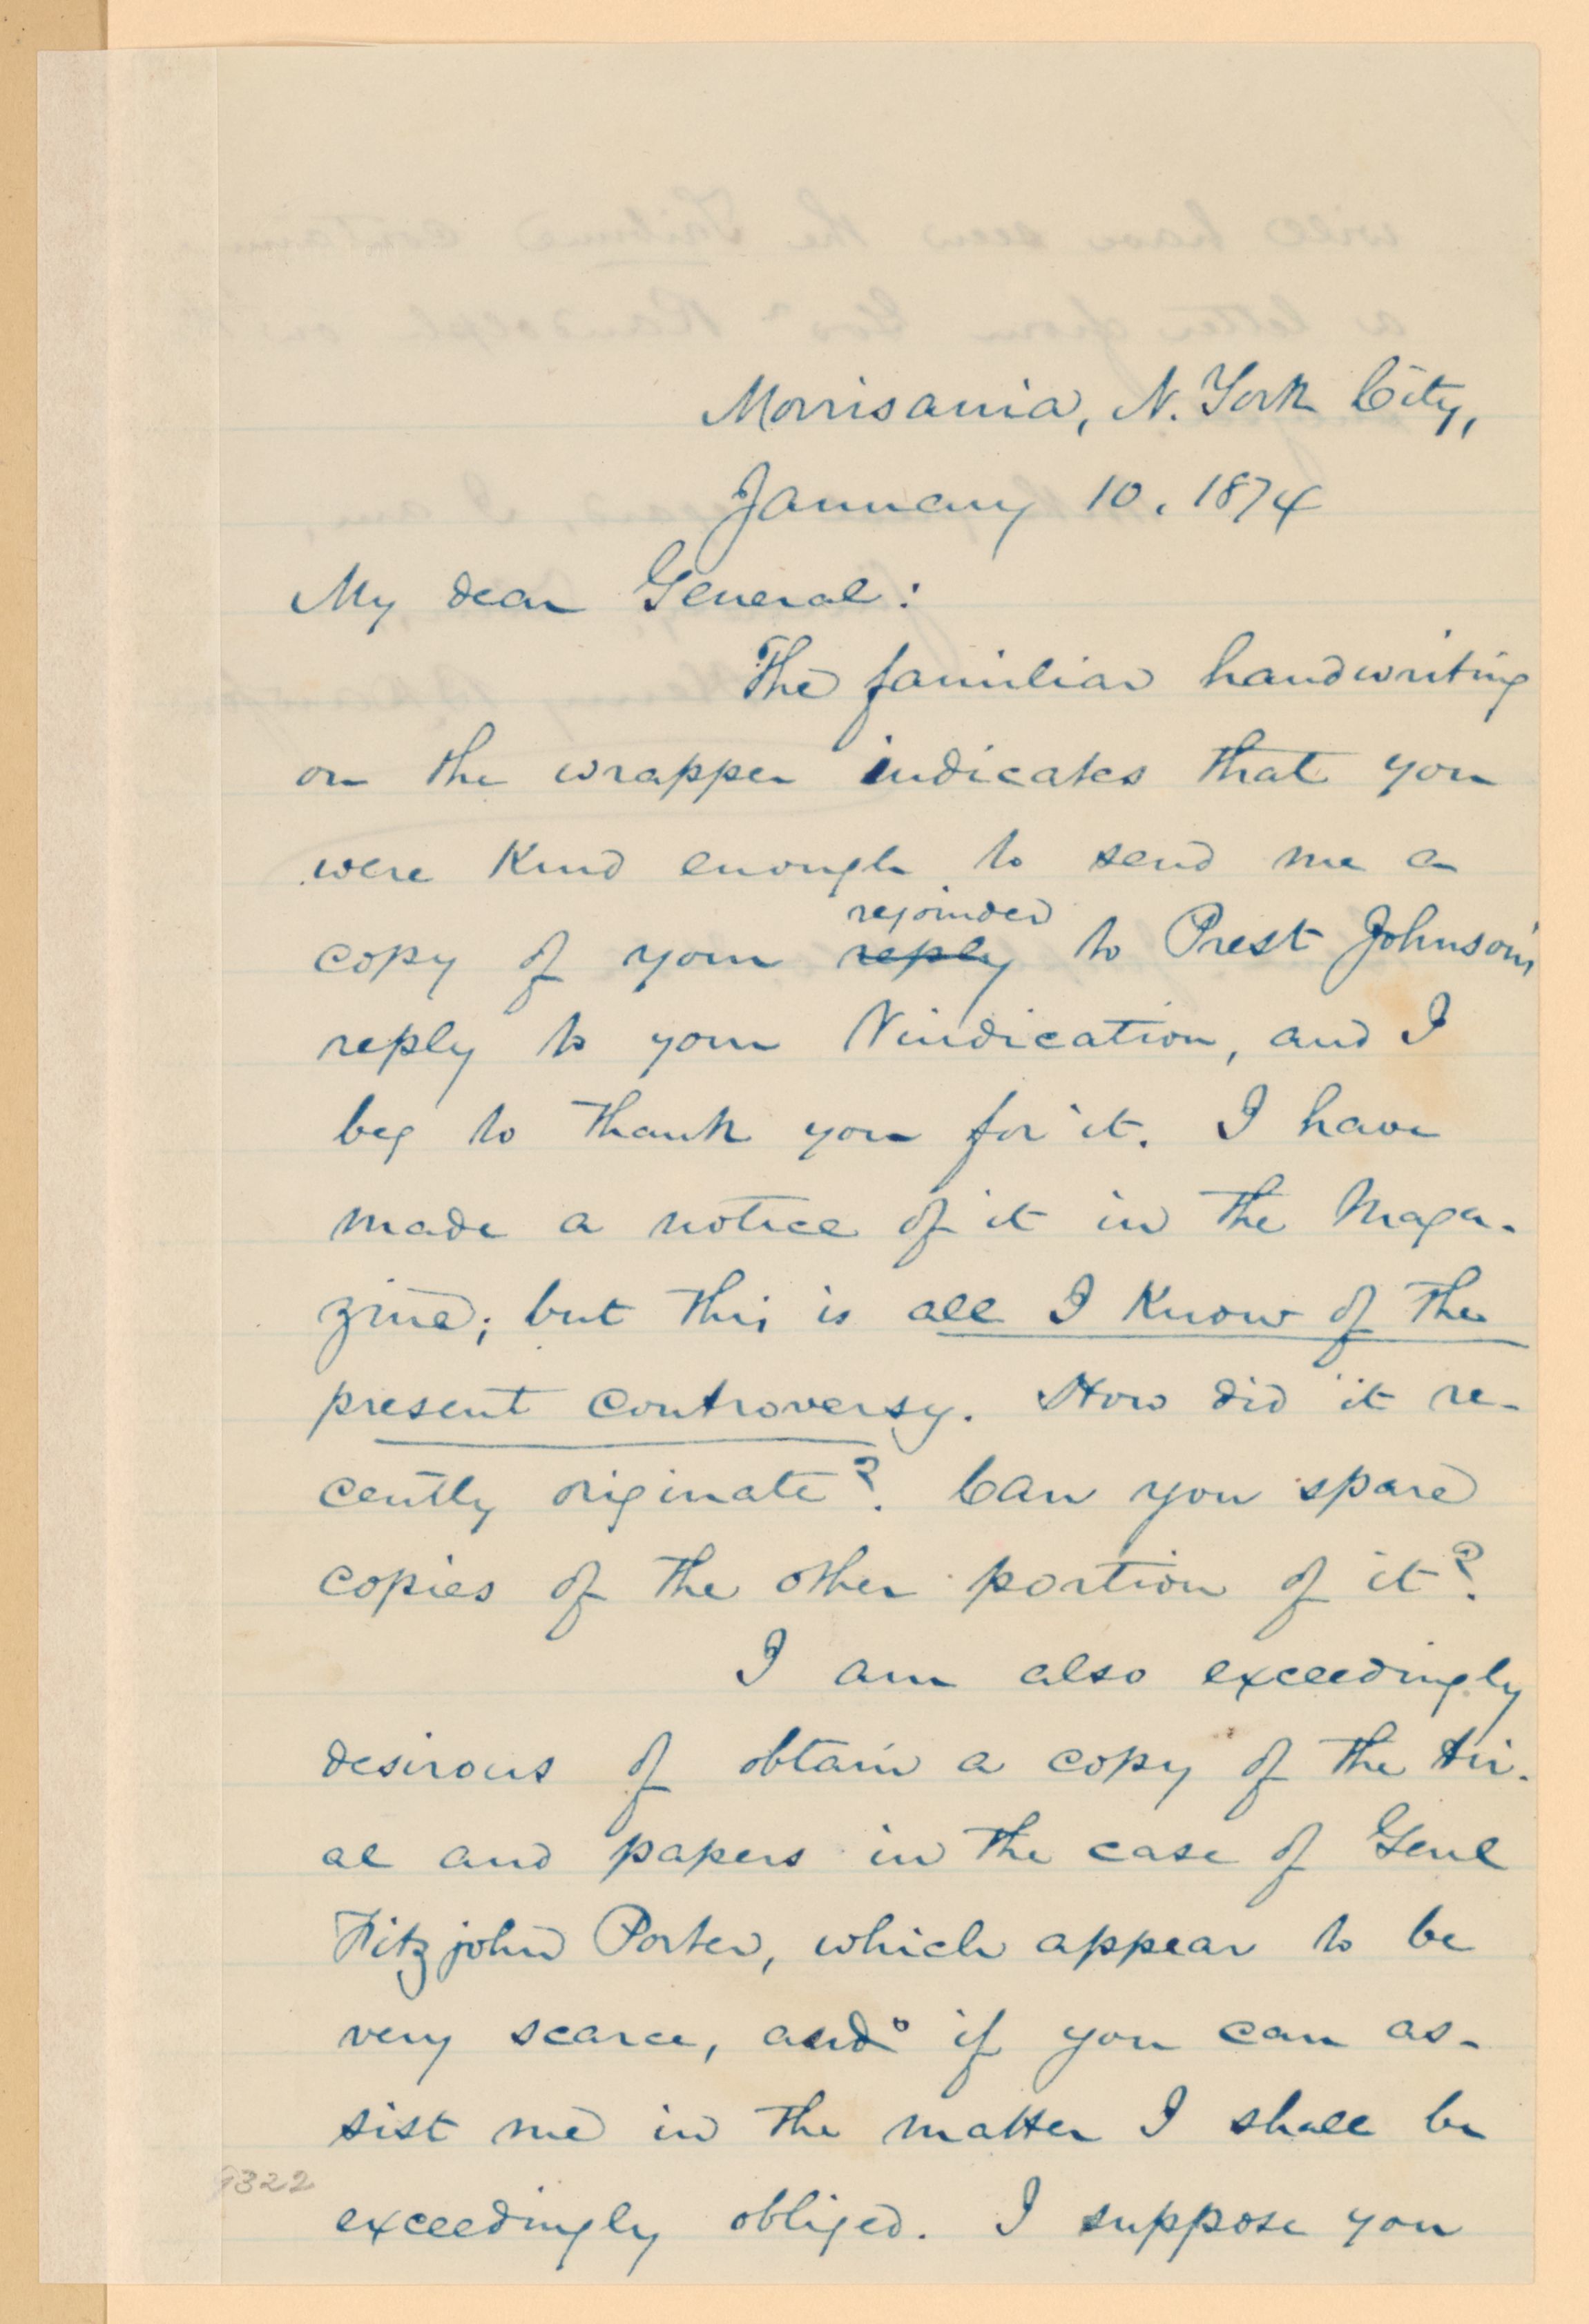 Morrisania, N. York City,
January 10, 1874
My dear General:
The familiar handwriting
on the wrapper indicates that you
were kind enough to send me a
copy of your reply rejoinder to Prest Johnson's
reply to your Vindication, and I
beg to thank you for it. I have
made a notice of it in the Maga-
zine; but this is all I know of the
present controversy. How did it re-
cently originate? Can you spare
copies of the other portion of it?
I am also exceedingly
desirous of obtain a copy of the tri-
al and papers in the case of Genl
Fitzjohn Porter, which appear to be
very scarce, and if you can as-
sist me in the matter I shall be
exceedingly obliged. I suppose you
9322